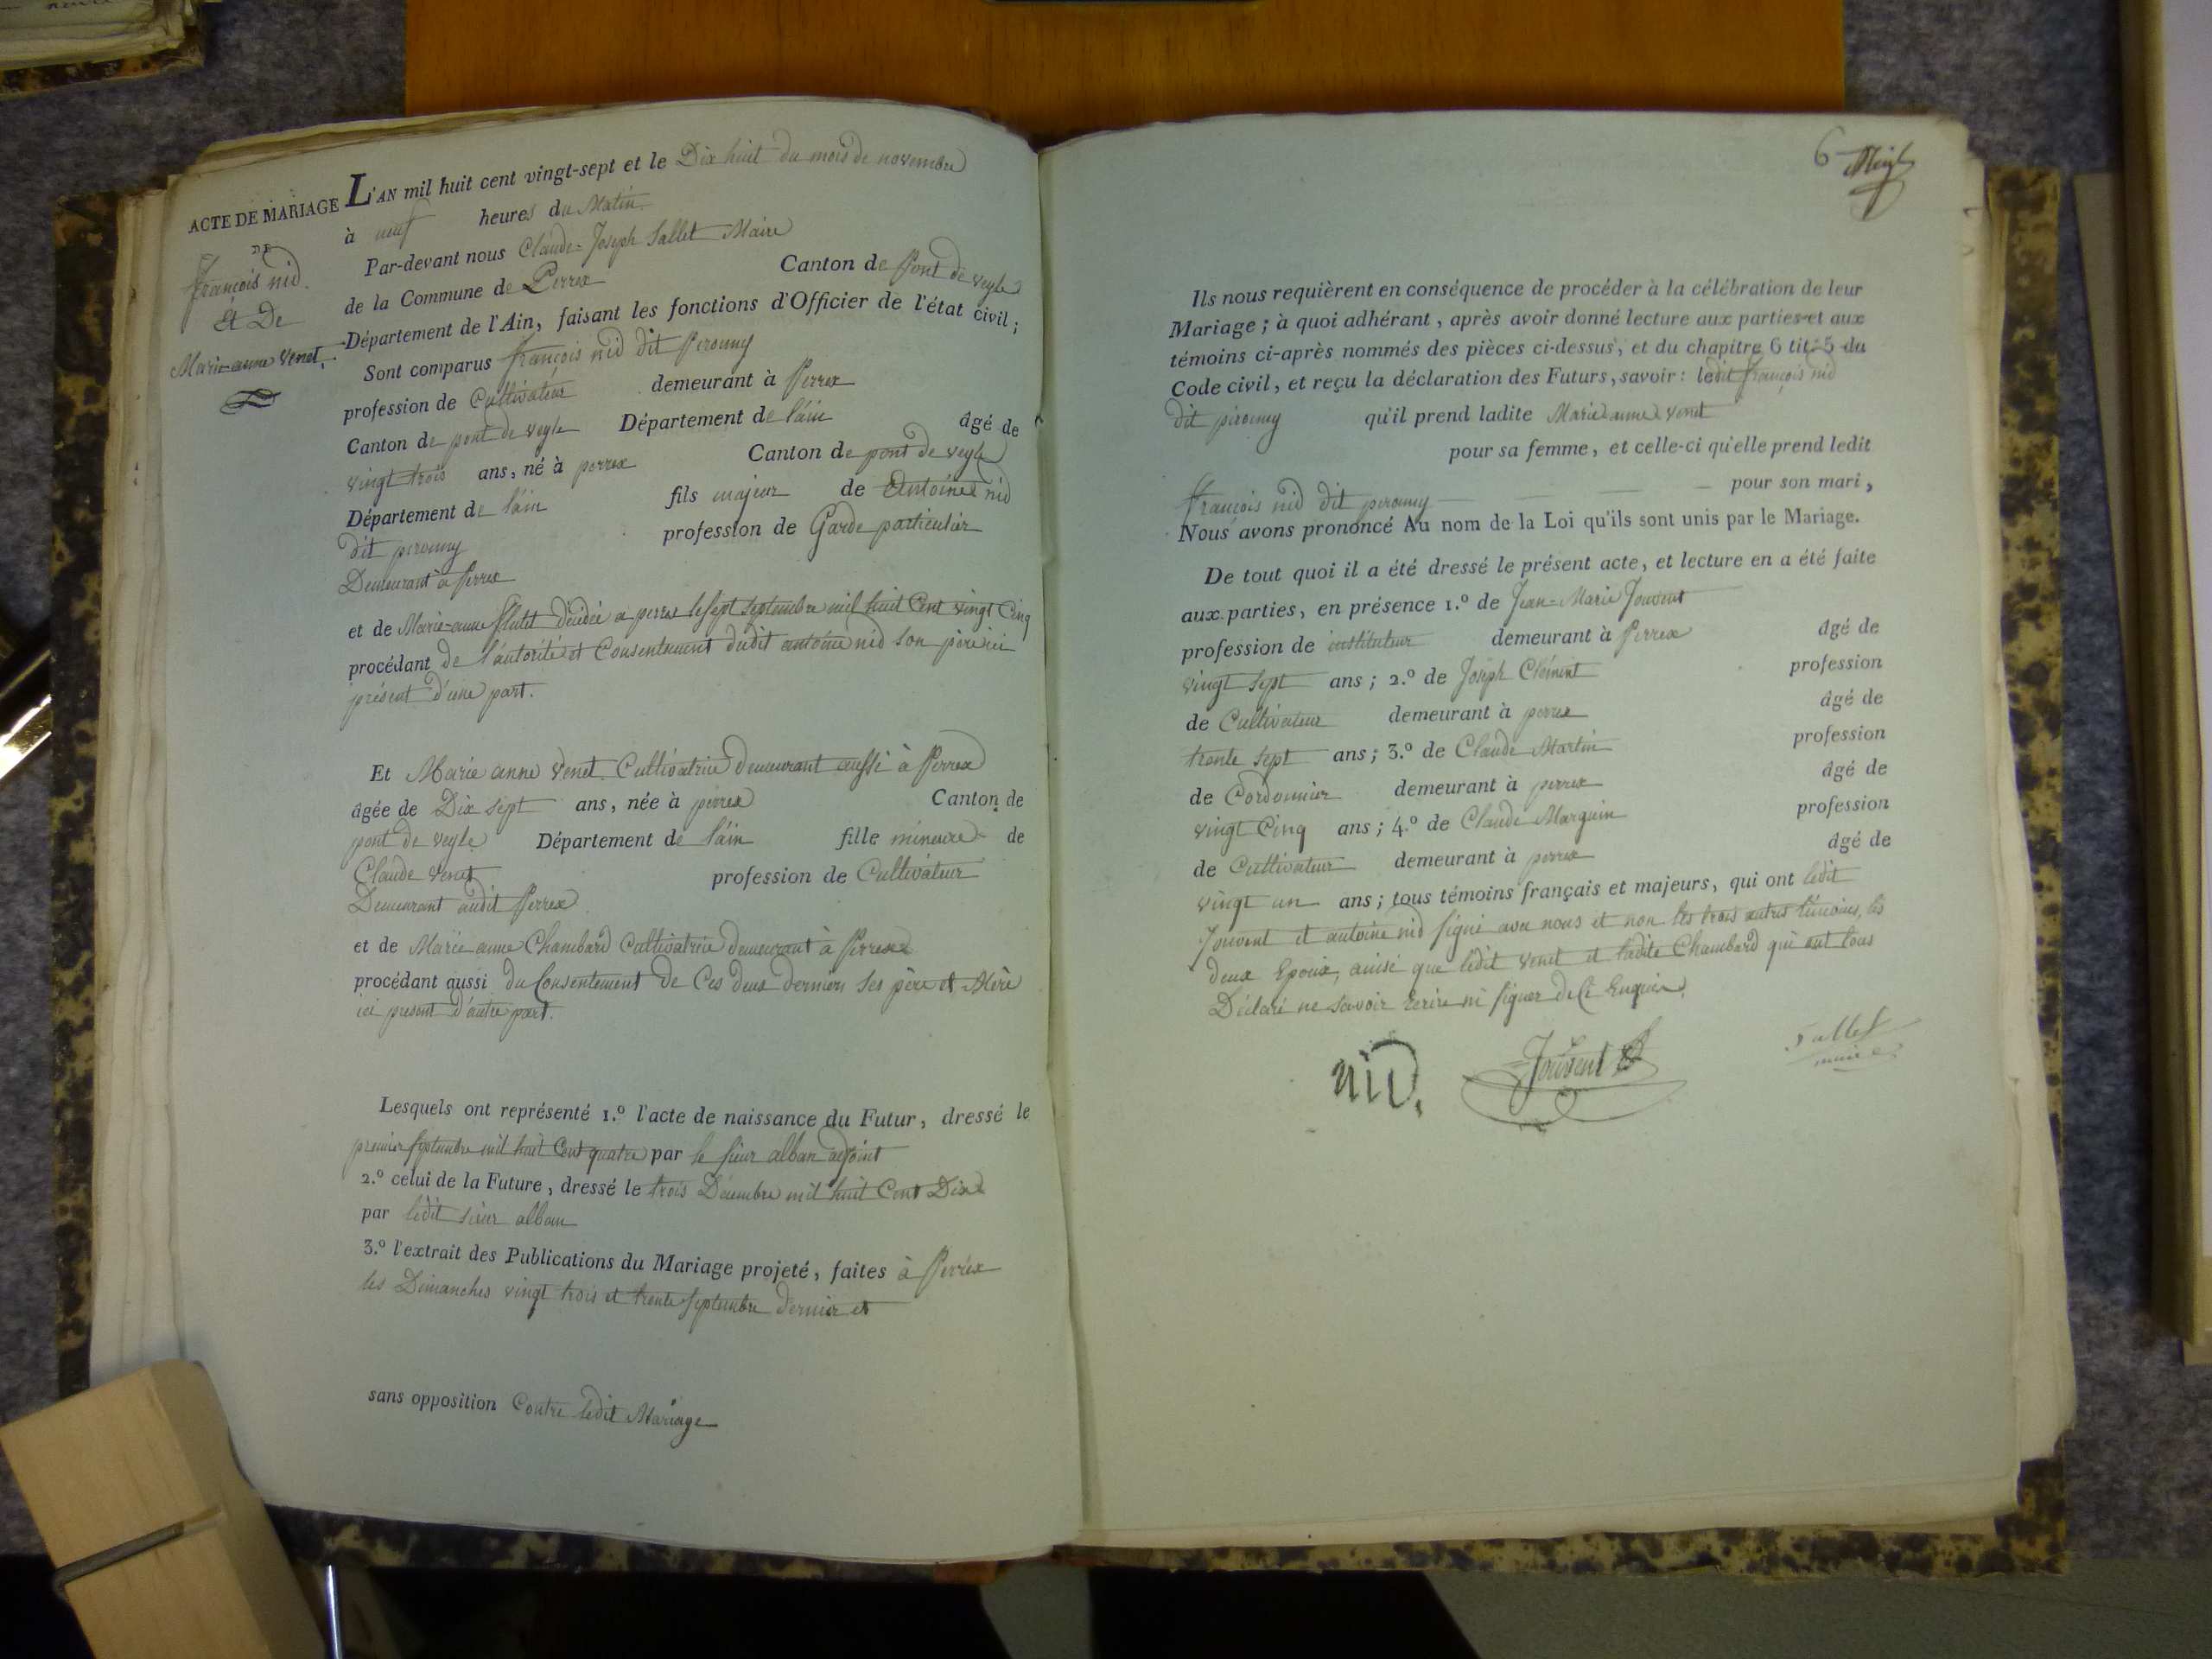 ACTE DE MARIAGE
DE
François nid
Et De
Marie-anne Venet.
L'AN mil huit cent vingt-sept et le Dix huit du mois de novembre
à neuf heures du Matin
Par-devant nous Claude-Joseph Sallet Maire
de la Commune de Perrex Canton de Pont de veyle
Département de l'Ain, faisant les fonctions d'Officier de l'état civil;
Sont comparus françois nid dit
profession de Cultivateur demeurant à Perrex
Canton de pont de veyle Département de l'ain âgé de
vingt trois ans, né à perrex Canton de pont de veyle
Département de l'ain fils majeur de Antoine nid
dit profession de Garde particulier
Demeurant à Perrex
et de Marie-anne décédée a perrex le sept septembre mil huit Cent vingt Cinq
procédant de l'autorité et Consentement dudit antoine nid son père ici
présent d'une part.
Et Marie anne Venet Cultivatrice demeurant aussi à Perrex
âgée de Dix sept ans, née à perrex Canton de
pont de veyle Département de l'ain fille mineure de
Claude Venet profession de Cultivateur
Demeurant audit Perrex
et de Marie anne Chambard Cultivatrice demeurant à Perrex
procédant aussi du Consentement de Ces deux derniers ses père et Mère
ici present d'autre part.
Lesquels ont représenté 1.º l'acte de naissance du Futur, dressé le
premier septembre mil huit Cent quatre par le sieur alban adjoint
2.º celui de la Future, dressé le trois Décembre mil huit Cent Dix
par ledit sieur alban
3.º l'extrait des Publications du Mariage projeté, faites à Perrex
les Dimanches vingt trois et trente septembre dernier et
sans opposition Contre ledit Mariage
6
Ils nous requièrent en conséquence de procéder à la célébration de leur
Mariage; à quoi adhérant, après avoir donné lecture aux parties et aux
témoins ci-après nommés des pièces ci-dessus, et du chapitre 6 tit. 5 du
Code civil, et reçu la déclaration des Futurs, savoir: ledit françois nid
dit qu'il prend ladite Marie anne venet
pour sa femme, et celle-ci qu'elle prend ledit
françois nid dit pour son mari,
Nous avons prononcé Au nom de la Loi qu'ils sont unis par le Mariage.
De tout quoi il a été dressé le présent acte, et lecture en a été faite
aux parties, en présence 1.º de Jean-Marie Jouvent
profession de instituteur demeurant à Perrex âgé de
vingt sept ans; 2.º de Joseph Clément profession
de Cultivateur demeurant à perrex âgé de
trente sept ans; 3.º de Claude Martin profession
de Cordonnier demeurant à perrex âgé de
vingt Cinq ans; 4.º de Claude Marguin profession
de Cultivateur demeurant à perrex âgé de
vingt un ans; tous témoins français et majeurs, qui ont ledit
Jouvent et antoine nid signé avec nous et non les trois autres témoins, les
deux Epoux, ainsi que ledit venet et ladite Chambard qui ont tous
Déclaré ne savoir Ecrire ni signer de Ce Enquis.
nid.
Jouvent
Sallet
maire